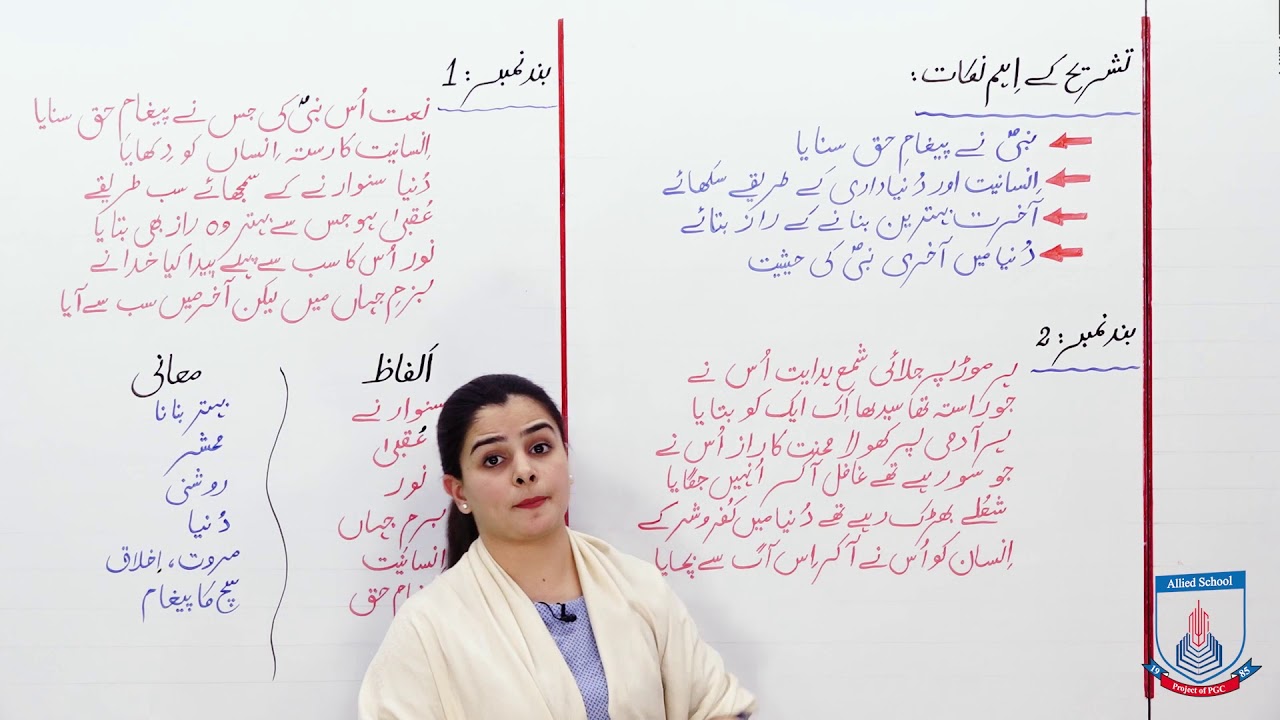 تشریح کے اہم نکات:
نبیؐ نے پیغامِ حق سنایا
اِنسانیت اور دُنیاداری کے طریقے سکھائے
آخرت بہترین بنانے کے راز بتائے
دُنیا میں آخری نبیؐ کی حیثیت
بند نمبر: 2
ہر موڑ پر جلائی شمع ہدایت اُس نے
جو راستہ تھا سیدھا اِک ایک کو بتایا
ہر آدمی پر کھولا محنت کا راز اُس نے
جو سو رہے تھے غافل آکر اُنہیں جگایا
شعُلے بھڑک رہے تھے دُنیا میں کُفر و شر کے
اِنسان کو اُس نے آکر اِس آگ سے بچایا
بند نمبر: 1
نعت اُس نبیؐ کی جس نے پیغامِ حق سنایا
اِنسانیت کا رستہ اِنساں کو دِکھایا
دُنیا سنوارنے کے سمجھائے سب طریقے
عُقبیٰ ہو جس سے بہتر وہ راز بھی بتایا
نور اُس کا سب سے پہلے پیدا کیا خدا نے
بزمِ جہاں میں لیکن آخر میں سب سے آیا
اَلفاظ معانی
سنوارنے بہتر بنانا
عُقبیٰ محشر
نور روشنی
بزم جہاں دُنیا
انسانیت مروت، اخلاق
حق سچ کا پیغام
Allied School
19 85
Project of PGC